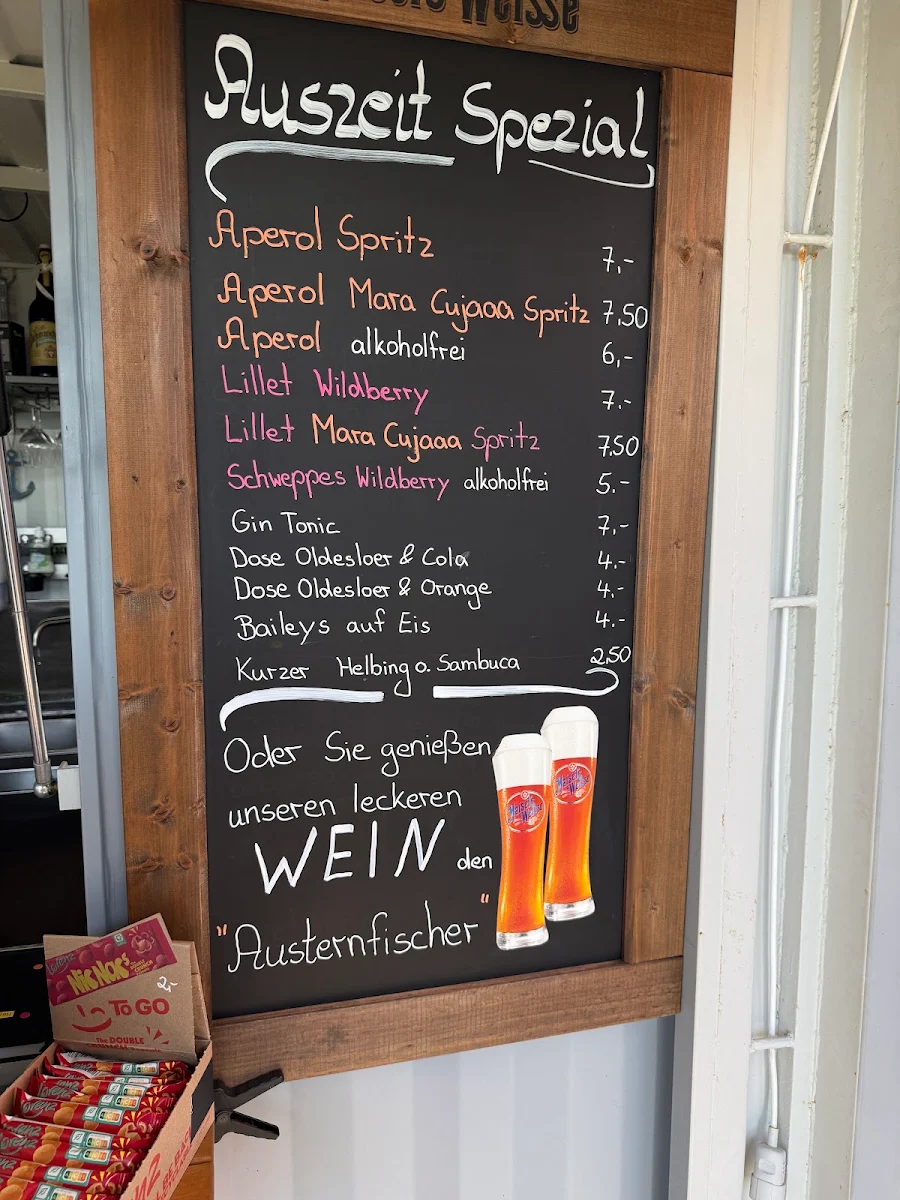 Weisse
Auszeit Spezial
Aperol Spritz 7,-
Aperol Mara Cujaaa Spritz 7,50
Aperol alkoholfrei 6,-
Lillet Wildberry 7.-
Lillet Mara Cujaaa Spritz 7,50
Schweppes Wildberry alkoholfrei 5.-
Gin Tonic 7,-
Dose Oldesloer & Cola 4.-
Dose Oldesloer & Orange 4.-
Baileys auf Eis 4.-
Kurzer Helbing o. Sambuca 2,50
Oder Sie genießen
unseren leckeren
WEIN den
"Austernfischer"
Maisel's
Weisse
Maisel's
Weisse
Lorenz
NicNac's
2,-
TO GO
The DOUBLE